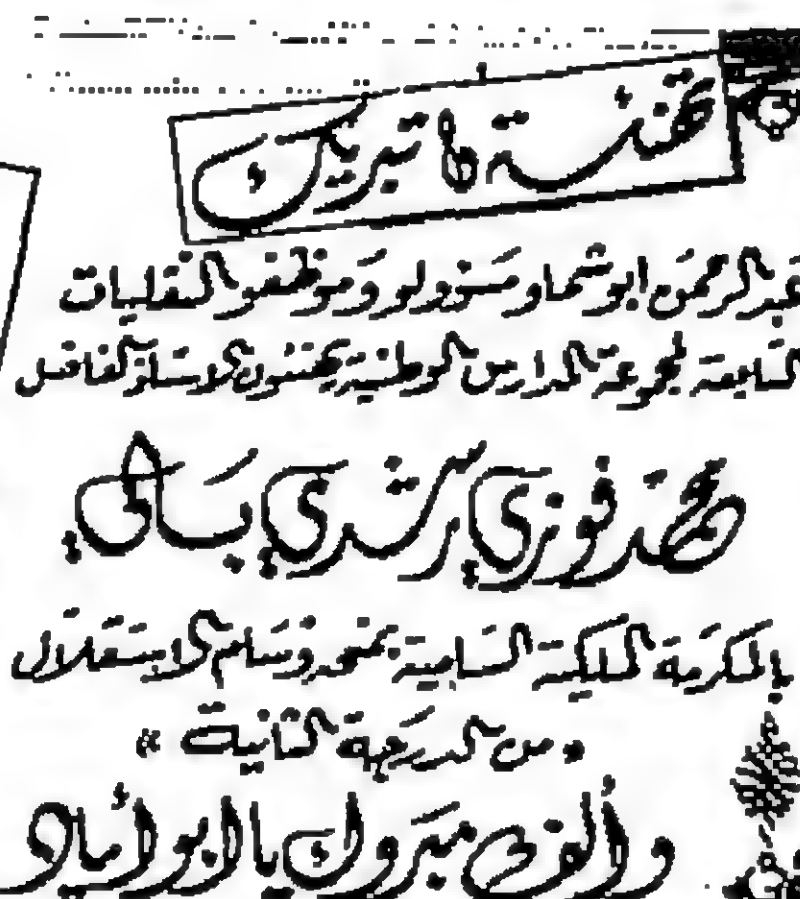 تهنئة تبريك
عبد الرحمن ابو وموظفو
التابعة لمجموعة المدارس الوطنية يهنئون الاستاذ الفاضل
محمد فوزي رشدي
بالمكرمة الملكية السامية بمنحه وسام الاستقلال
من الدرجة الثانية »
وألف مبروك يا ابو